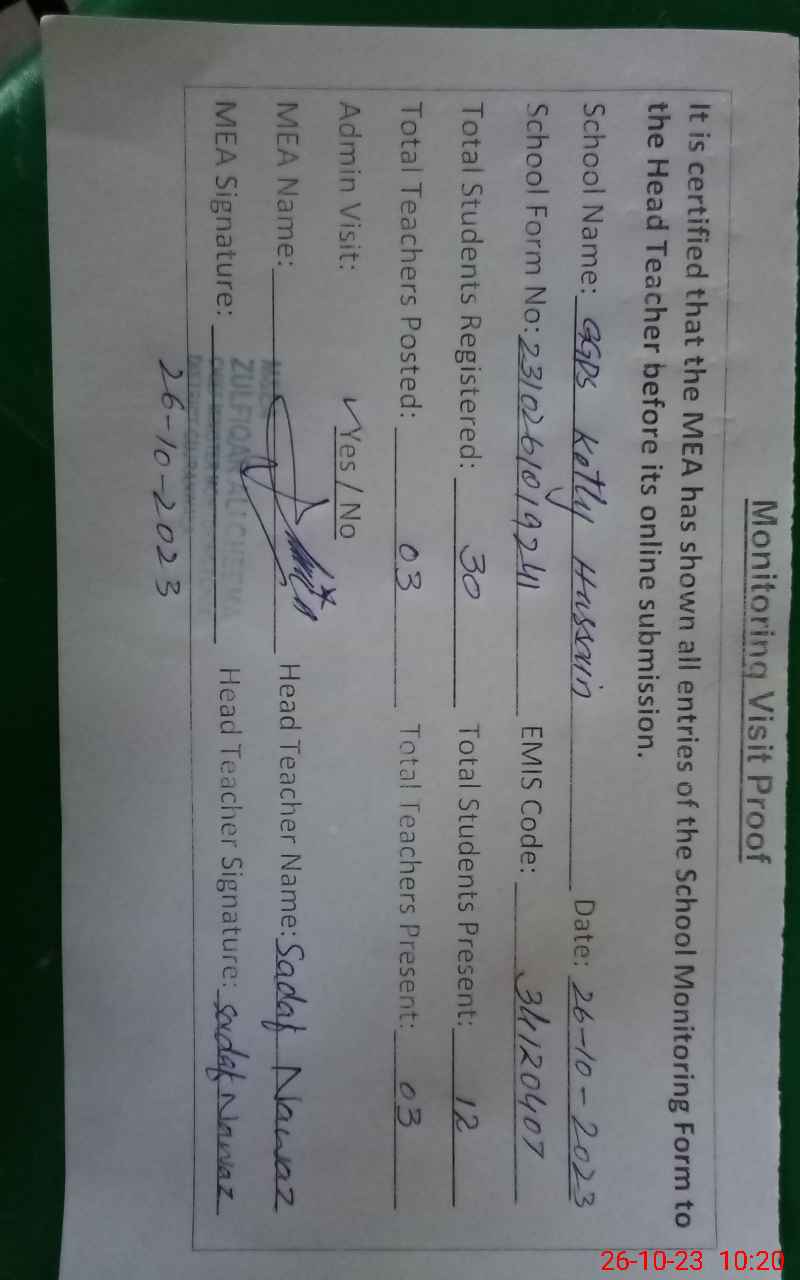 Monitoring Visit Proof
It is certified that the MEA has shown all entries of the School Monitoring Form to
the Head Teacher before its online submission.
School Name: GGPS Kotly Hussain Date: 26-10-2023
School Form No: 2310261019241 EMIS Code: 34120407
Total Students Registered: 30 Total Students Present: 12
Total Teachers Posted: 03 Total Teachers Present: 03
Admin Visit: ✓Yes / No
MEA Name: Head Teacher Name: Sadaf Nawaz
MEA Signature: Head Teacher Signature: Sadaf Nawaz
ZULFIQAR ALI CHEEMA
26-10-2023
26-10-23 10:20